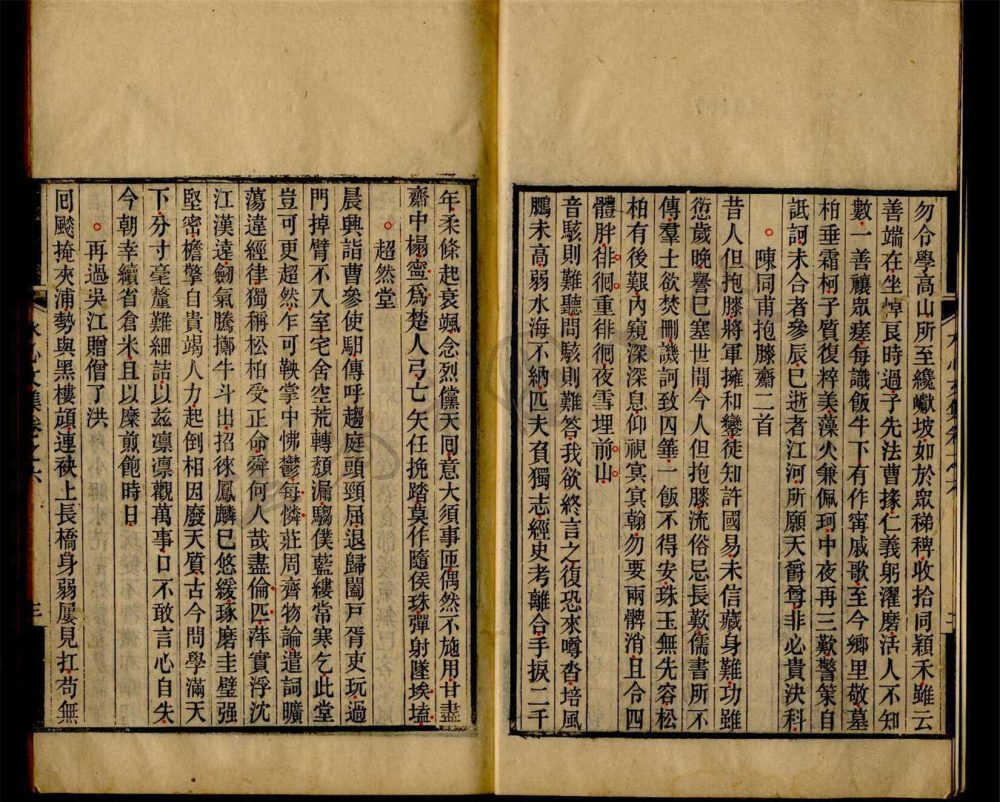 勿令學高山所至纔巘坡如於眾稊稗收拾同穎禾雖云
善端在坐悼良時過子先法曹掾仁義躬濯磨活人不知
數一善禳眾瘥每識飯牛下有作甯戚歌至今鄉里敬墓
柏垂霜柯子質復粹美藻火兼佩珂中夜再三歎警策自
詆訶未合者參辰已逝者江河所願天爵尊非必貴決科
陳同甫抱膝齋二首
昔人但抱膝將軍擁和鑾徒知許國易未信藏身難功雖
愆歲晚譽已塞世間今人但抱膝流俗忌長歎儒書所不
傳羣士欲焚刪譏訶致囚箠一飯不得安珠玉無先容松
柏有後艱內窺深深息仰視冥冥翰勿要兩髀消且令四
體胖徘徊重徘徊夜雪埋前山
音駭則難聽問駭則難答我欲終言之復恐來噂沓培風
鵬未高弱水海不納匹夫負獨志經史考離合手捩二千
年柔條起衰颯念烈儻天回意大須事匝偶然不施用甘盡
齋中榻寧爲楚人弓亡矢任挽踏莫作隨侯珠彈射墜埃𡏖
超然堂
晨興詣曹參使馹傳呼趨庭頭頸屈退歸闔戸胥吏玩過
門掉臂不入室宅舍空荒轉頹漏騶僕藍縷常寒乞此堂
豈可更超然乍可鞅掌中怫鬱每憐莊周齊物論遣詞曠
蕩違經律獨稱松柏受正命舜何人哉盡倫匹萍實浮沈
江漢遠劒氣騰擲牛斗出招徠鳳麟已悠緩琢磨圭璧强
堅密檐擎自貴竭人力起倒相因廢天質古今問學滿天
下分寸毫釐難細詰以兹凛凛觀萬事口不敢言心自失
今朝幸續省倉米且以糜煎飽時日
再過吳江贈僧了洪
回飇掩夾浦勢與黑樓頑連袂上長橋身弱屢見扛苟無